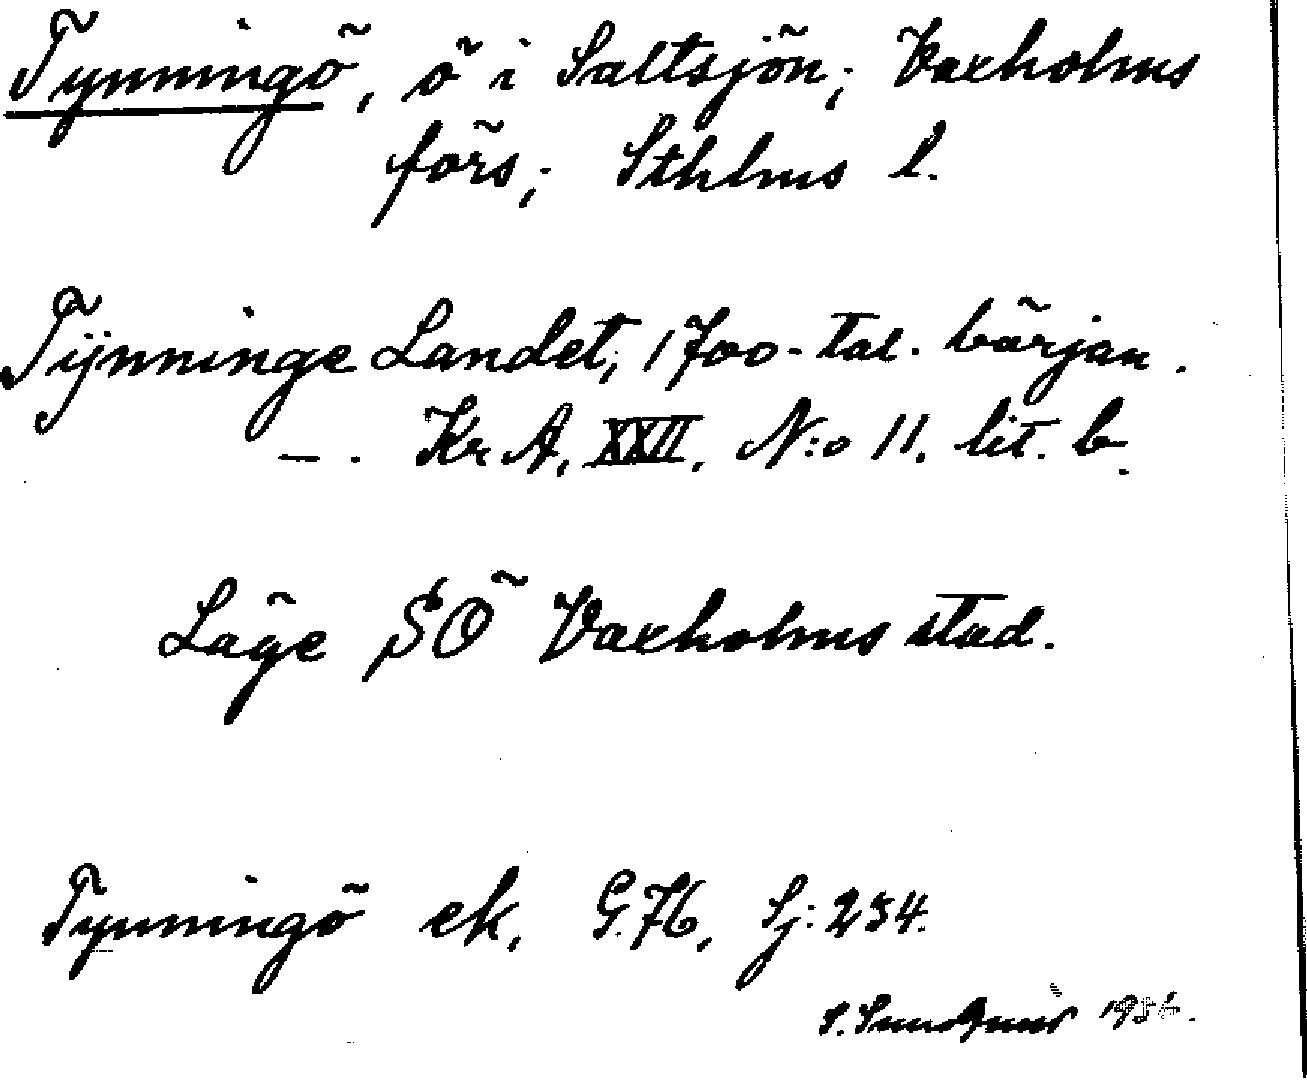 Tynningö, ö i Saltsjön; Vaxholms
förs; Sthlms l.
Tÿnninge Landet, 1700-tal. början.
—. Kr A, XXII, N:o 11. lit. b.
Läge SÖ Vaxholms stad.
Tynningö ek, G.76, Sj: 254.
S. 1936.